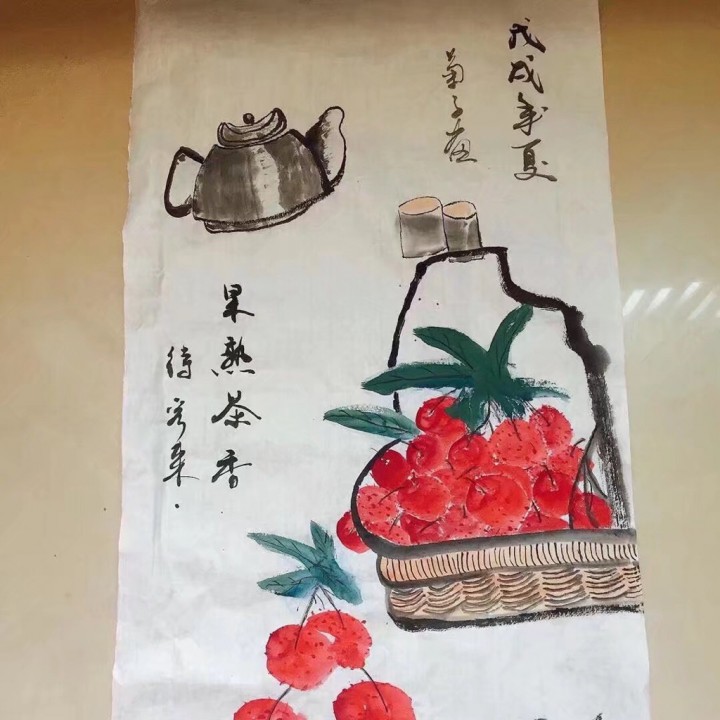 戊戌年夏
菊子画
果熟茶香
待客来.